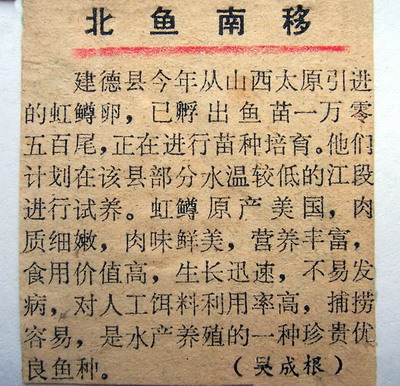 北鱼南移
建德县今年从山西太原引进
的虹鳟卵，已孵出鱼苗一万零
五百尾，正在进行苗种培育。他们
计划在该县部分水温较低的江段
进行试养。虹鳟原产美国，肉
质细嫩，肉味鲜美，营养丰富，
食用价值高，生长迅速，不易发
病，对人工饵料利用率高，捕捞
容易，是水产养殖的一种珍贵优
良鱼种。（吴成根）